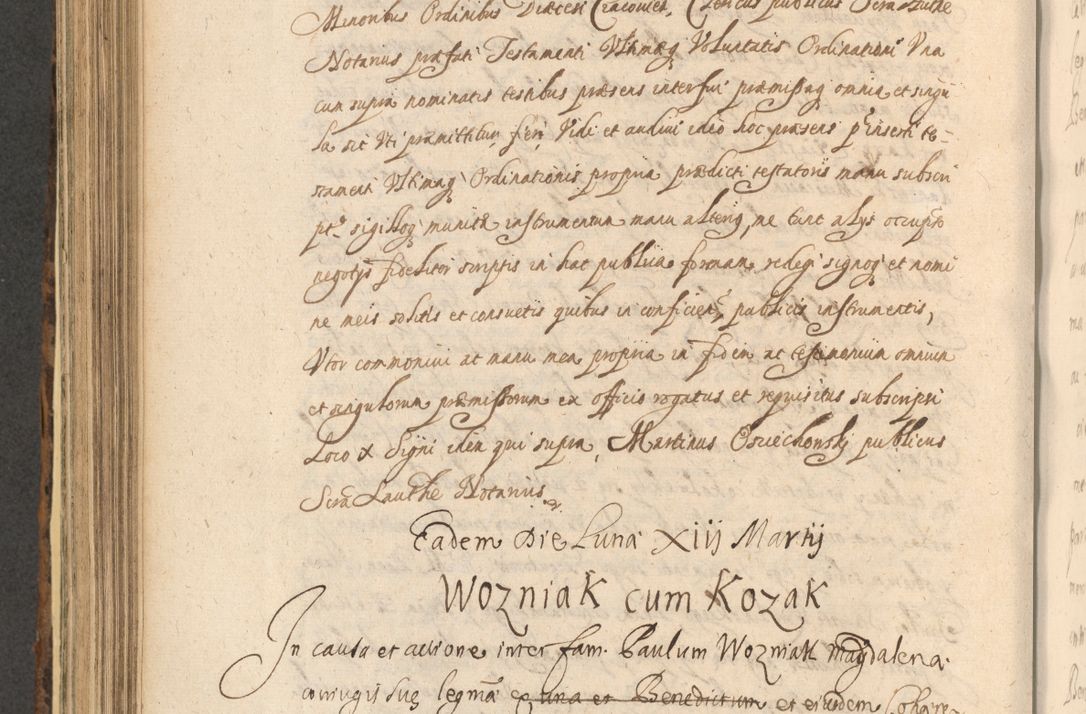 Minoribus Ordinibus Diæcesi Cracovien, Clericus publicus Scra Authe
Notarius præfati Testamenti Ultimæq Voluntatis Ordinationi Una
cum supra nominatis testibus præsens interfui præmissaq omnia et singu
la sic Uti præmittitur, fieri Vidi et audivi ideo hoc præsens pr inserti te-
stamenti Ultimæq Ordinationis propria prædicti testatoris manu subscri
pte sigilloq munitæ instrumentum manu alterius, ne tunc alys occupto
negotys fideliter scriptis in hac publica formam redegi signoq et nomi
ne meis solitis et consuetis quibus in conficien publicis instrumentis,
Utor communivi ac manu mea propria in fidem ac testimonium omnium
et singulorum præmissorum ex officio rogatus et requisitus subscripsi
Loco x Signi idem qui supra, Martinus Osciechonsky publicus
Scra Lauthe Notarius
Eadem Die Luna XIIJ Martij
Wozniak cum Kozak
In causa et actione inter fam. Paulum Wozniak Magdalena
coniugis suæ legmæ ex una et Benedictum et eiusdem Cohære-